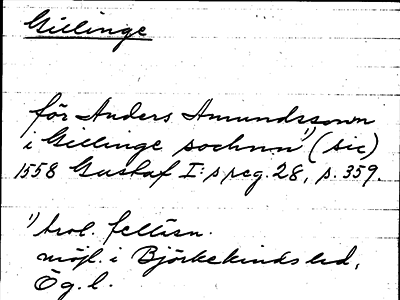 Gillinge
för Anders Amundsson
i Gillinge sochnn ¹) (sic)
1558 Gustaf I:s reg. 28, s. 359.
¹) trol. felläsn.
möjl. i Björkekinds hd,
Ög. l.